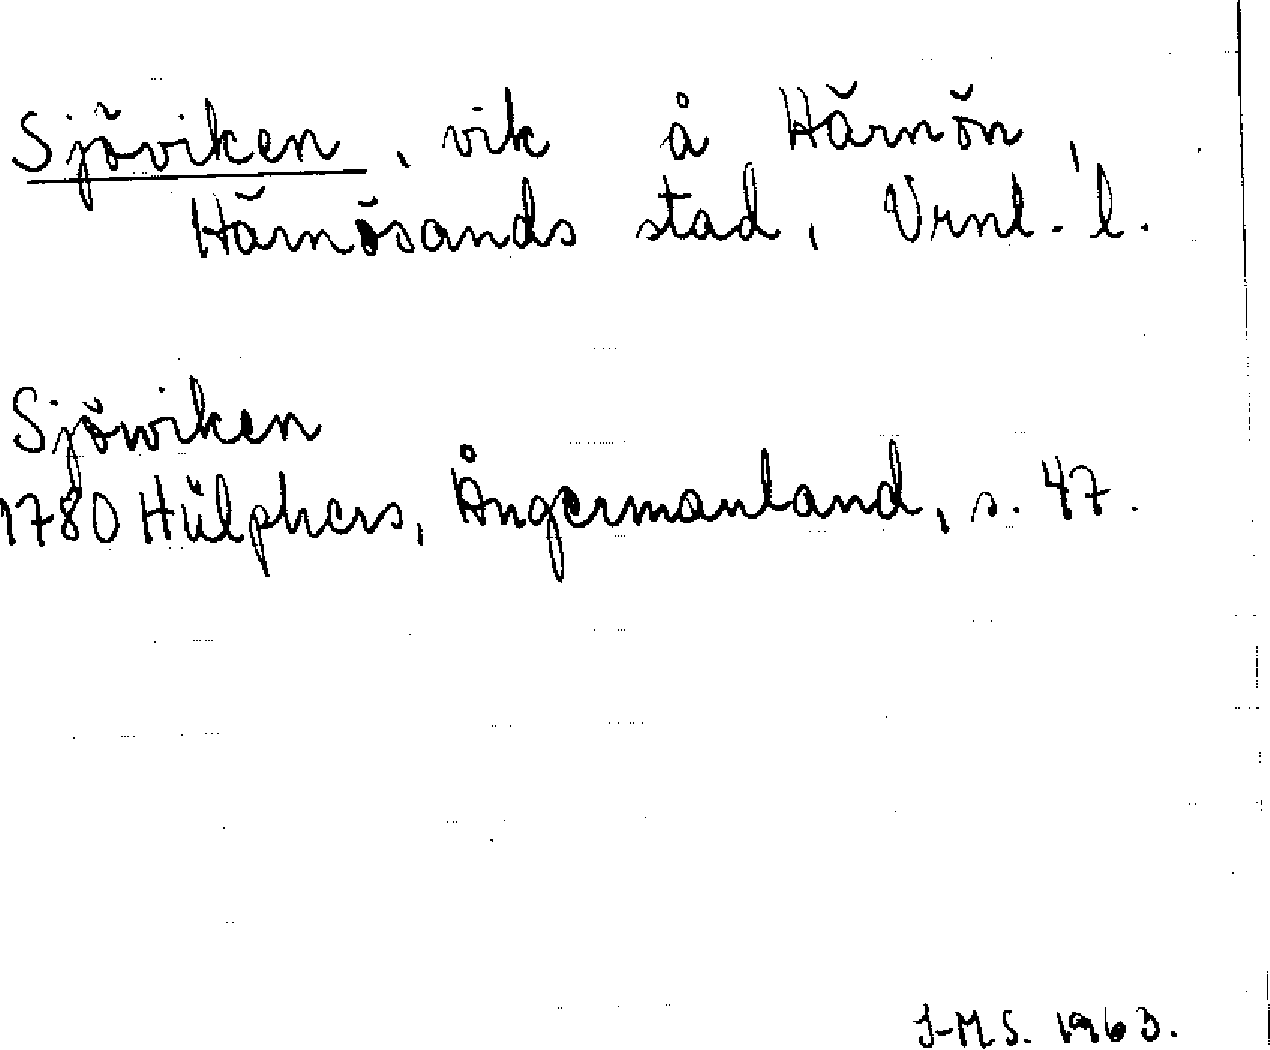 Sjöviken, vik å Härnön,
Härnösands stad, Vrnl. l.
Sjöwiken
1780 Hülphers, Ångermanland, s. 47.
I-M S. 1963.